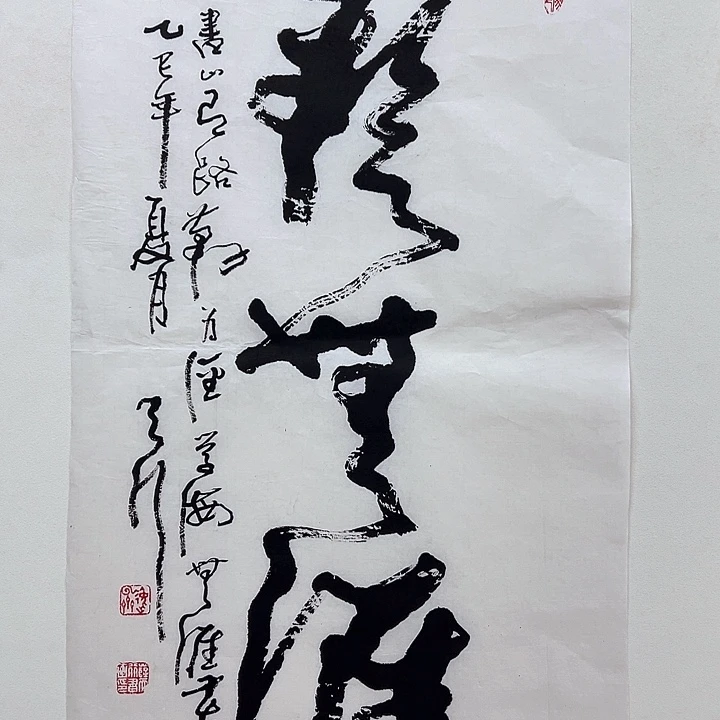 無涯
書山有路勤為徑學海無涯苦
乙巳年夏月